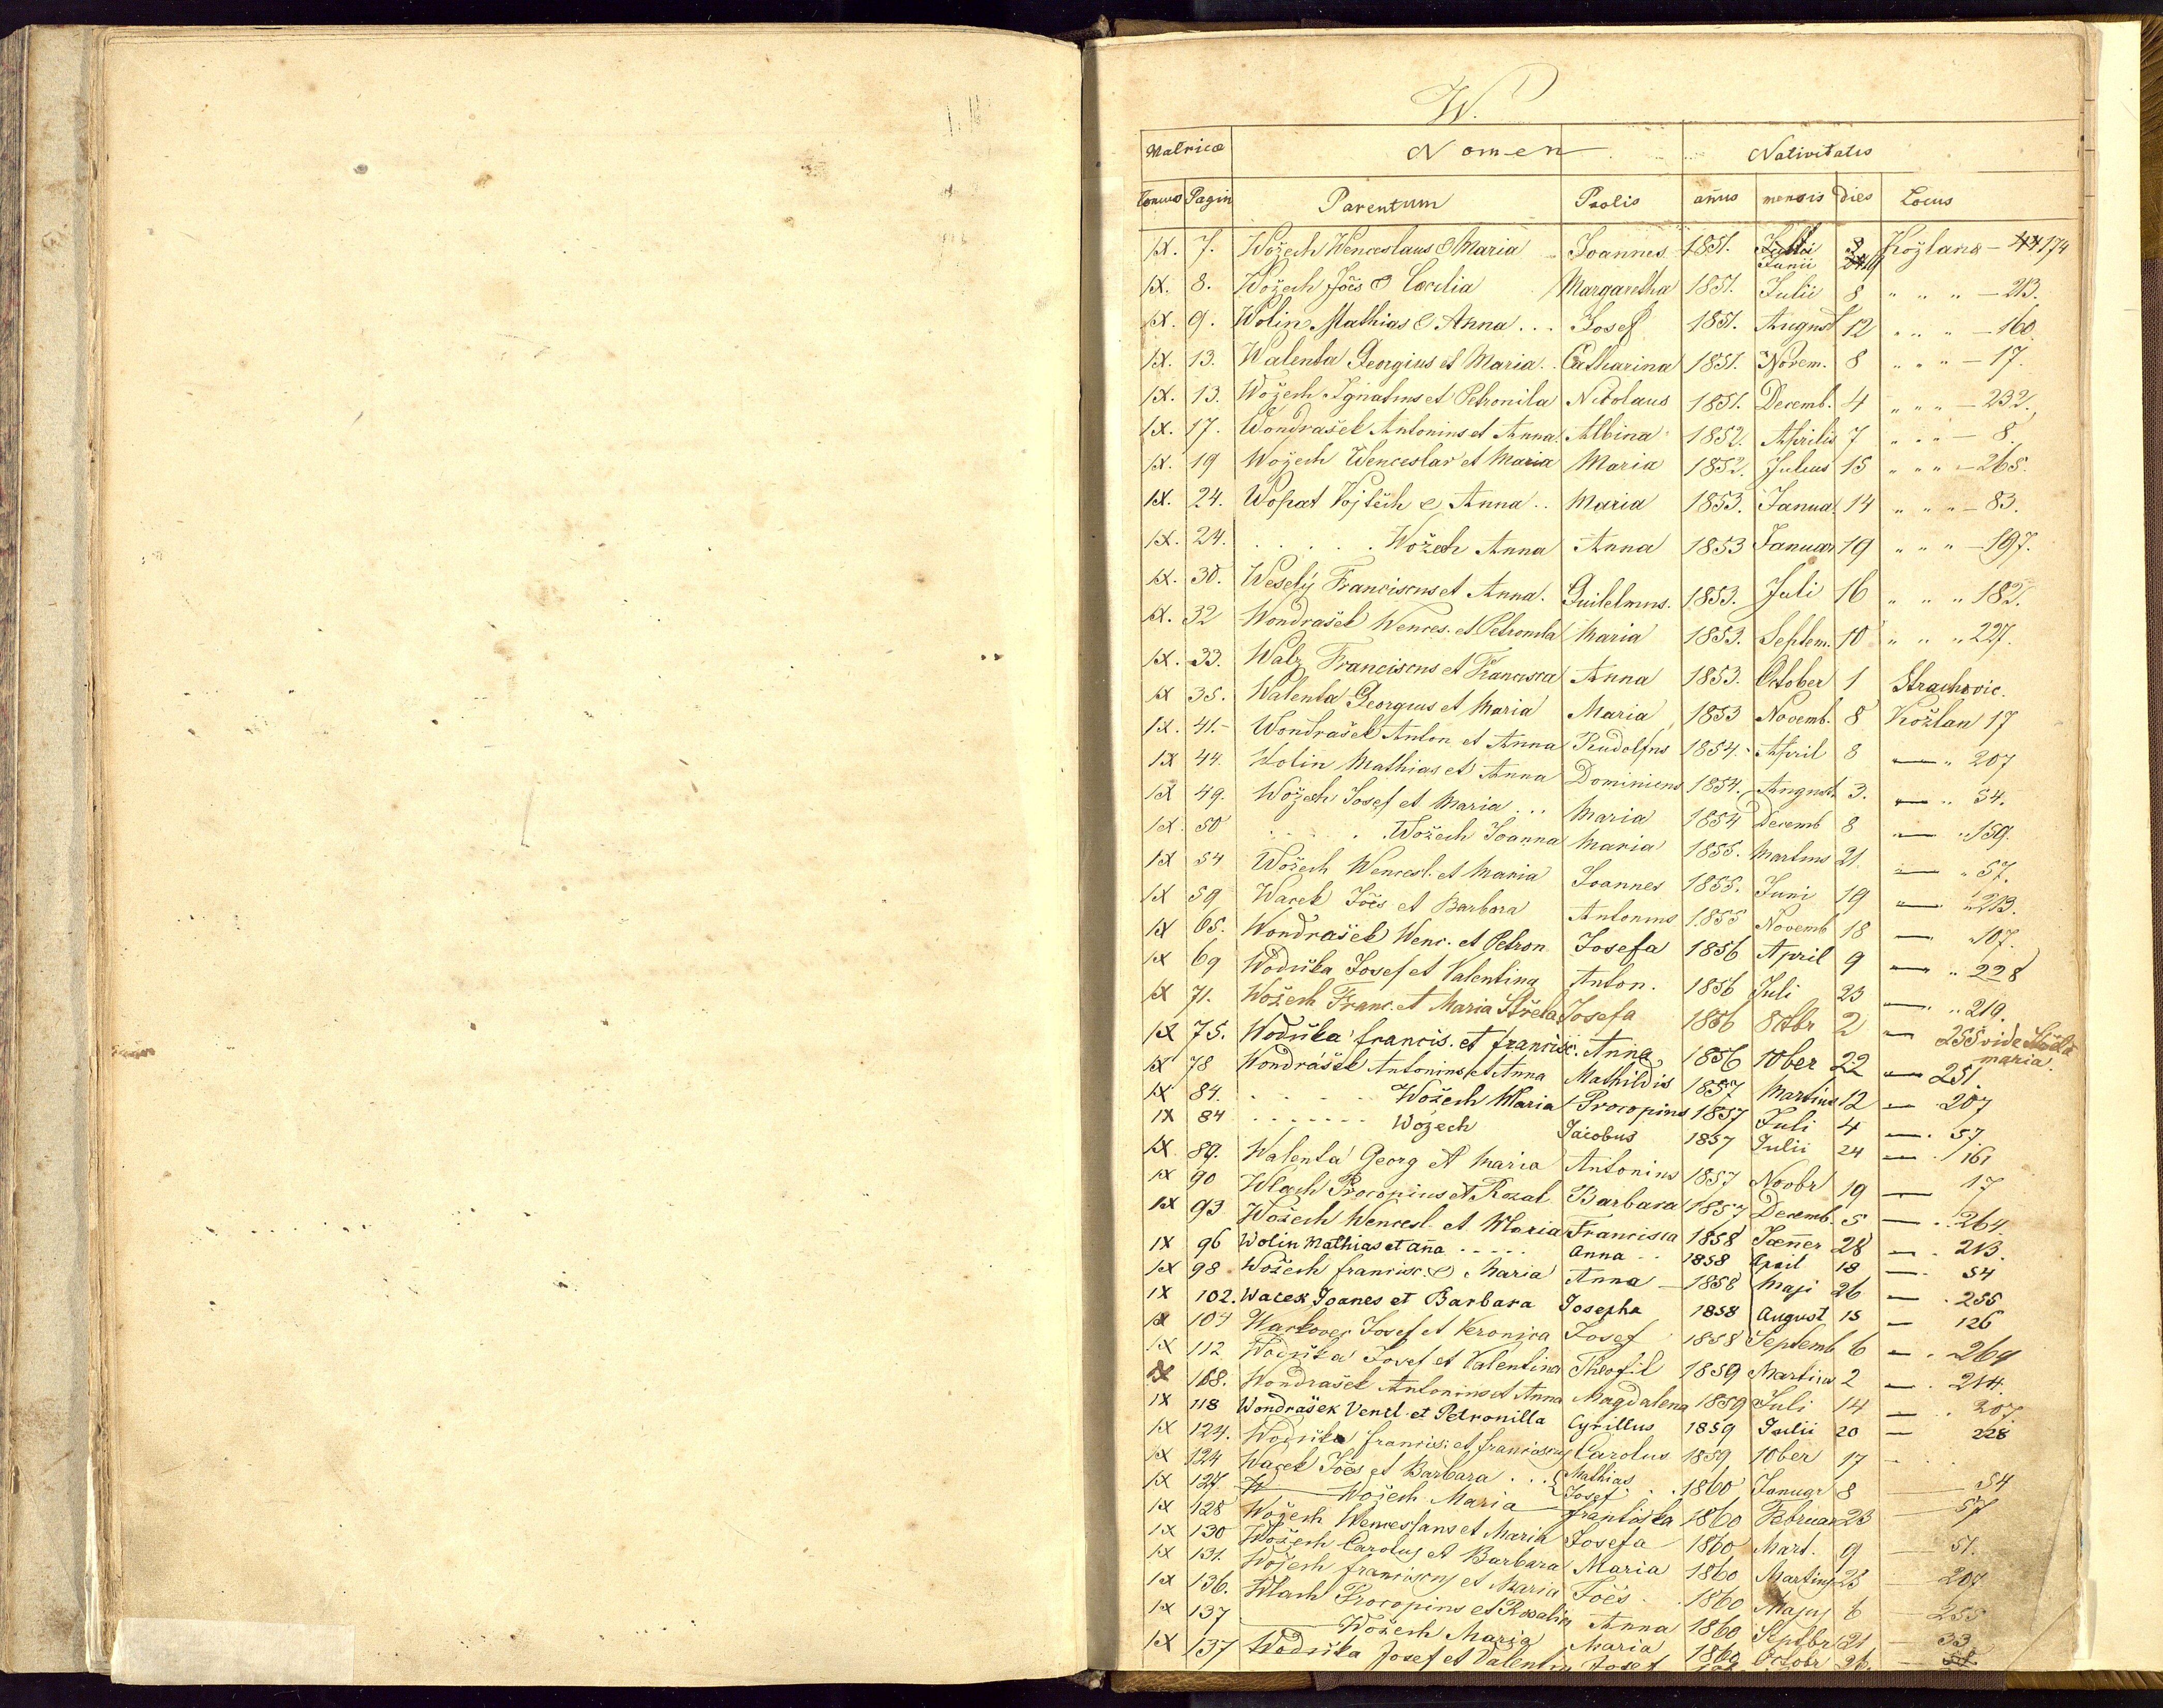 W.
Matricæ Nomen Nativitatis
Tomus Pagin Parentum Prolis añus mensis dies Locus
IX. 7. Wožech Wenceslaus & Maria Joannes 1851. Junii Kožlana - 174
IX. 8. Wožech Jões & Cæcilia Margaretha 1851. Julii 8 " " " - 213.
IX. 9. Wolin Mathias & Anna . . . Josef 1851. August 12 " " " - 160.
IX. 13. Walenta Georgius et Maria . . Catharina 1851. Novem. 8 " " " - 17.
IX. 13. Wožech Ignatius et Petronila Nicolaus 1851. Decemb. 4 " " " - 232.
IX. 17. Wondrašek Antonius et Anna. Albina 1852. Aprilis 7 " " " - 8.
IX. 19 Wožech Wenceslav et Maria Maria 1852. Julius 15 " " " - 265.
IX. 24. Wopat Vojtěch & Anna . . Maria 1853. Janua. 14 " " " - 83.
IX. 24. . . . . . Wožech Anna Anna 1853 Januar 19 " " " - 197.
IX. 30. Weselý Franciscus et Anna. Guilelmus. 1853. Juli 16 " " " 182.
IX. 32 Wondrašek Wences. et Petronila Maria 1853. Septem. 10 " " " 227.
IX. 33. Walz Franciscus et Francisca Anna 1853. October 1 Strachovic.
IX 35. Walenta Georgius et Maria Maria 1853 Novemb. 8 Kožlan 17
IX. 41. - Wondrašek Anton et Anna Rudolfus 1854. - April 8 — " 207
IX 44. Wolin Mathias et Anna Dominicus 1854. August. 3. — " 54.
IX 49. Wožech Josef et Maria . . . Maria 1854 Decemb 8 — " 159.
IX. 50 . . . . . Wožech Joanna Maria 1855. Martius 21. — " 57.
IX 54 Wožech Wencesl. et Maria Joannes 1855. Juni 19 — " 213.
IX 59 Wacek Jões et Barbara Antonius 1855 Novemb 18 — 107.
IX 65. Wondrašek Wenc. et Petron Josefa 1856 April 9 — " 228
IX 69 Wodička Josef et Valentina Anton. 1856 Juli 23 — " 219.
IX 71. Wožech Franc. et Maria Střela Josefa 1856 8ctbr 2 — 255 vide Střela maria.
IX 75. Wodička francis. et francisc. Anna 1856 10ber 22 — 251
IX 78 Wondrášek Antonius et Anna Mathildis 1857 Martius 12 — 207
IX 84. . . . . . Wožech Maria Procopius 1857 Juli 4 — . 57.
IX 84 . . . . . . . Wožech Jacobus 1857 Julii 24 — . 161
IX 89. Walenta Georg et Maria Antonius 1857 Novbr 19 — 17
IX 90 Wlach Procopius et Rozal Barbara 1857 Decemb. 5 — . 264.
IX 93 Wožech Wencesl. et Maria Francisca 1858 Jæñer 28 — . 213.
IX 96 Wolin Mathias et Aña . . . . . Anna . . 1858 April 18 — 54
IX 98 Wožech francisc. & Maria Anna - 1858 Maji 26 — . 255
IX 102. Wacek Joanes et Barbara Josepha 1858 August 15 — 126
IX 104 Warkover Josef et Veronica Josef 1858 Septemb 6 — . 264
IX 112. Wodička Josef et Valentina Theofil 1859 Martius 2 — . 214.
IX 168. Wondrašek Antonius et Anna Magdalena 1859 Juli 14 — . 207.
IX 118 Wondrášek Vencl. et Petronilla Cyrillus 1859 Julii 20 — 228
IX 124. Wodička francis. et franciscus Carolus 1859 10ber 17 - . .
IX 124 Wacek Jões et Barbara . . . { Mathias Josef . . 1860 Januar 8 — 54
IX 127. Wožech Maria — františka 1860 Februar 23 — 57
IX 128 Wožech Wenceslaus et Maria Josefa 1860 Mart. 9 — 51.
IX 130 Wožech Carolus et Barbara Maria 1860 Martius 25 — 207
IX 131. Wožech franciscus et Maria Jões . . 1860 Majus 6 — 255
IX 136. Wlach Procopius et Rosalia Anna 1860 Septbr 21 - 33
IX 137 — Wožech Maria Maria 1860 Octobr 26.
IX 137 Wodička Josef et Valentin Josef